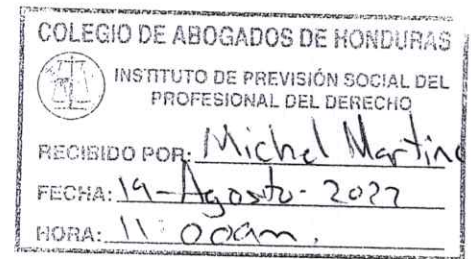 COLEGIO DE ABOGADOS DE HONDURAS
INSTITUTO DE PREVISIÓN SOCIAL DEL
PROFESIONAL DEL DERECHO
RECIBIDO POR: Michel
FECHA: 19-Agosto-2022
HORA: 11:00am.